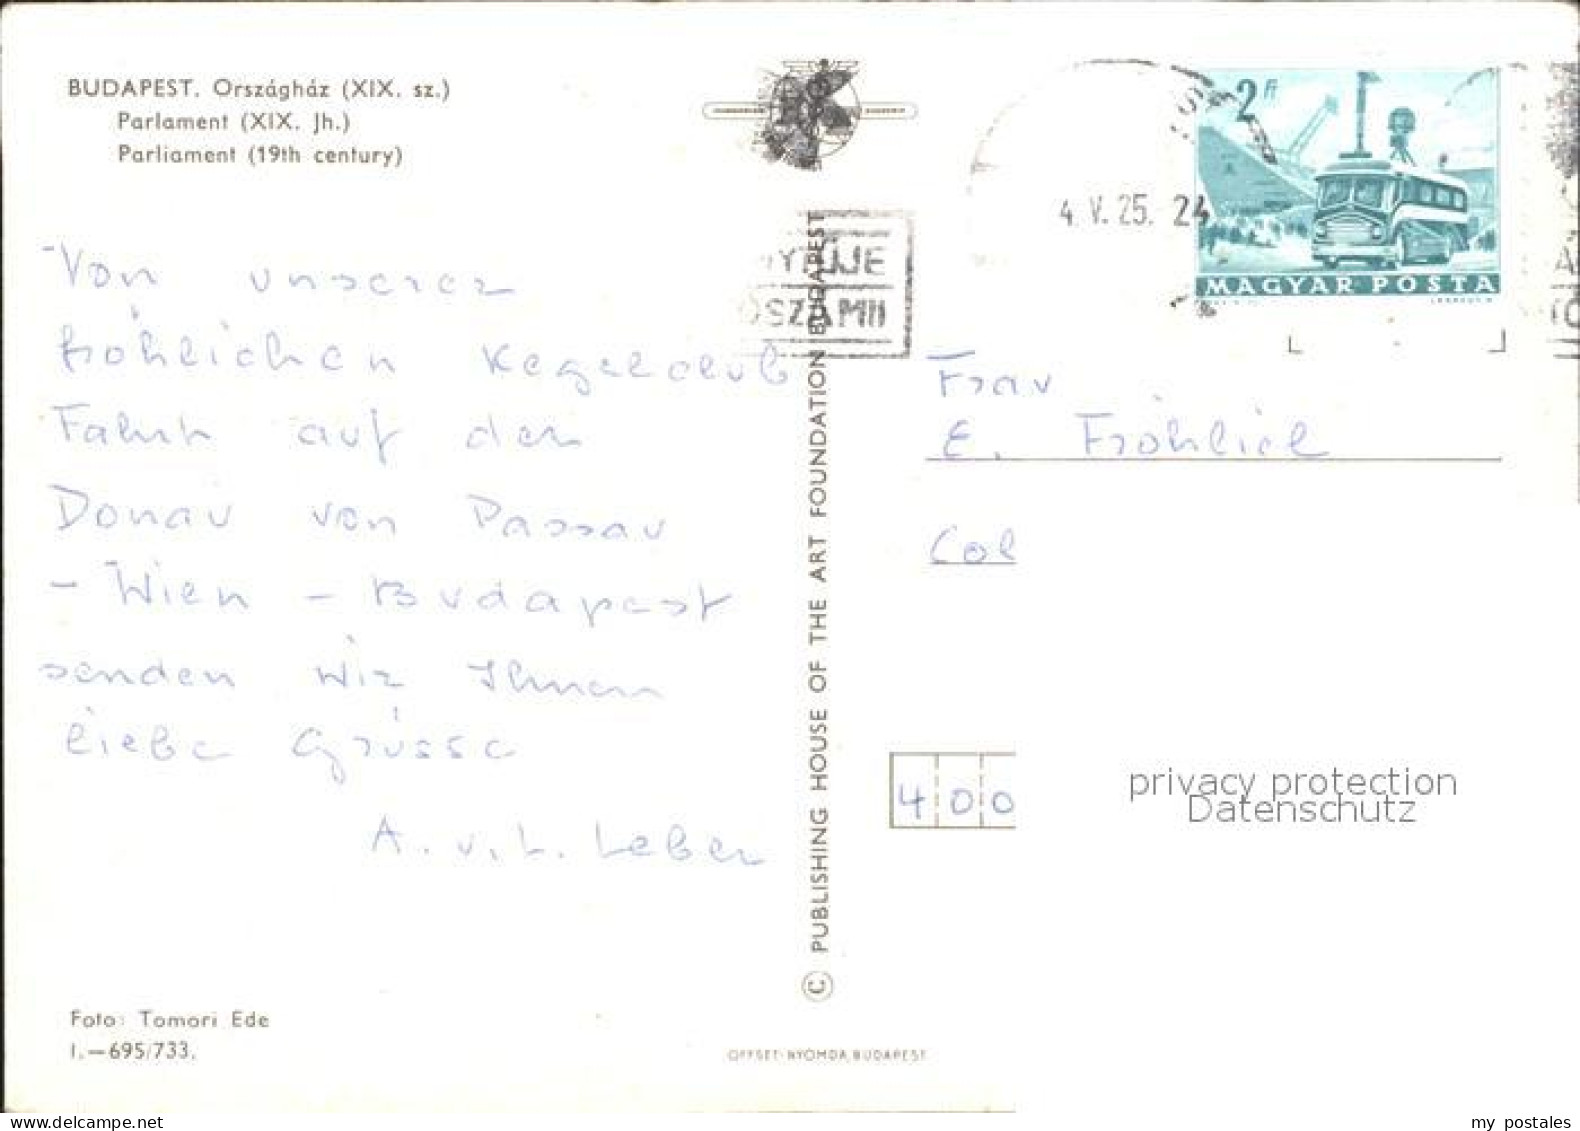 BUDAPEST. Országház (XIX. sz.)
Parlament (XIX. Jh.)
Parliament (19th century)
Von unserer
fröhlichen Kegelclub
Fahrt auf der
Donau von Passau
- Wien - Budapest
senden wir Ihnen
liebe Grüsse
A. v. L. Leber
Foto: Tomori Ede
I.—695/733.
© PUBLISHING HOUSE OF THE ART FOUNDATION BUDAPEST
OFFSET-NYOMDA BUDAPEST
4. V. 25. 24
2 Ft
MAGYAR POSTA
Frau
E. Fröhlich
Col
400
privacy protection
Datenschutz
my postales